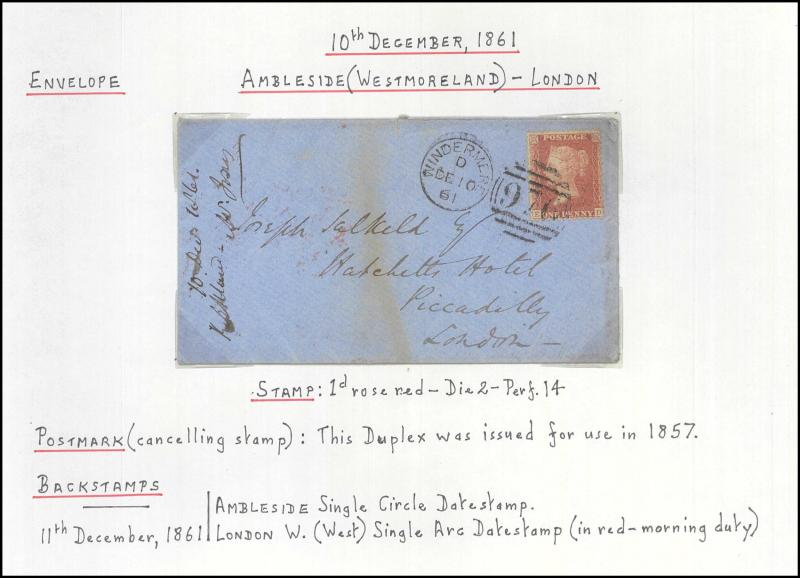 10th DECEMBER, 1861
ENVELOPE
AMBLESIDE (WESTMORELAND) - LONDON
10 Dec 1861.
WINDERMERE
D
DE 10
61
POSTAGE
E D
ONE PENNY
Joseph Salkeld Esq
Hatchetts Hotel
Piccadilly
London -
STAMP: 1d rose red - Die 2 - Perf. 14
POSTMARK (cancelling stamp): This Duplex was issued for use in 1857.
BACKSTAMPS
AMBLESIDE Single Circle Datestamp.
11th December, 1861 LONDON W. (West) Single Arc Datestamp (in red - morning duty)